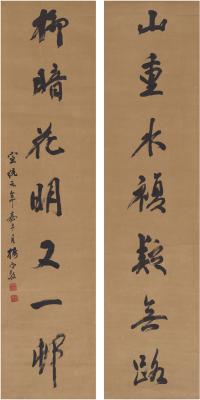 山重水複疑無路
柳暗花明又一邨
宣統元年嘉平月楊守敬